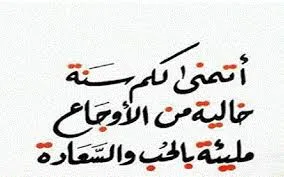 أتمنى لكم سَنة
خالية من الأوجَاع
مليئة بالحُب والسَّعادة